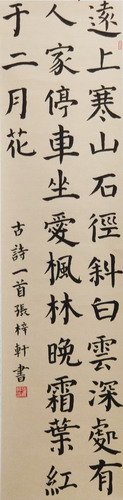 遠上寒山石徑斜白雲深處有
人家停車坐愛楓林晚霜葉紅
于二月花
古詩一首張梓軒書